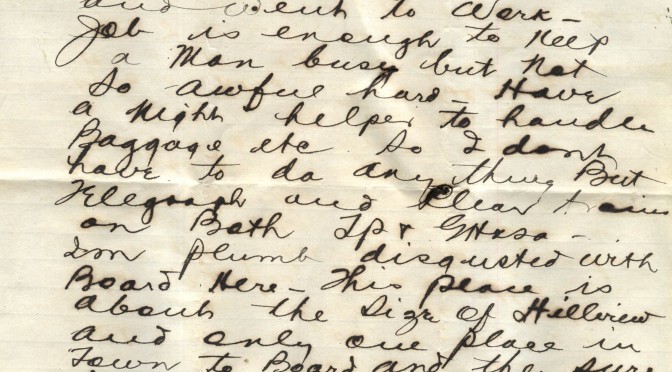 and went to work -
Job is enough to keep
a man busy but not
so awful hard - Have
a night helper to handle
Baggage etc so I dont
have to do any thing But
Telegraph and clear trains
on Both TP & GH&SA -
Im plumb disgusted with
Board Here - This place is
about the size of Hillview
and only one place in
Town to Board and the sure